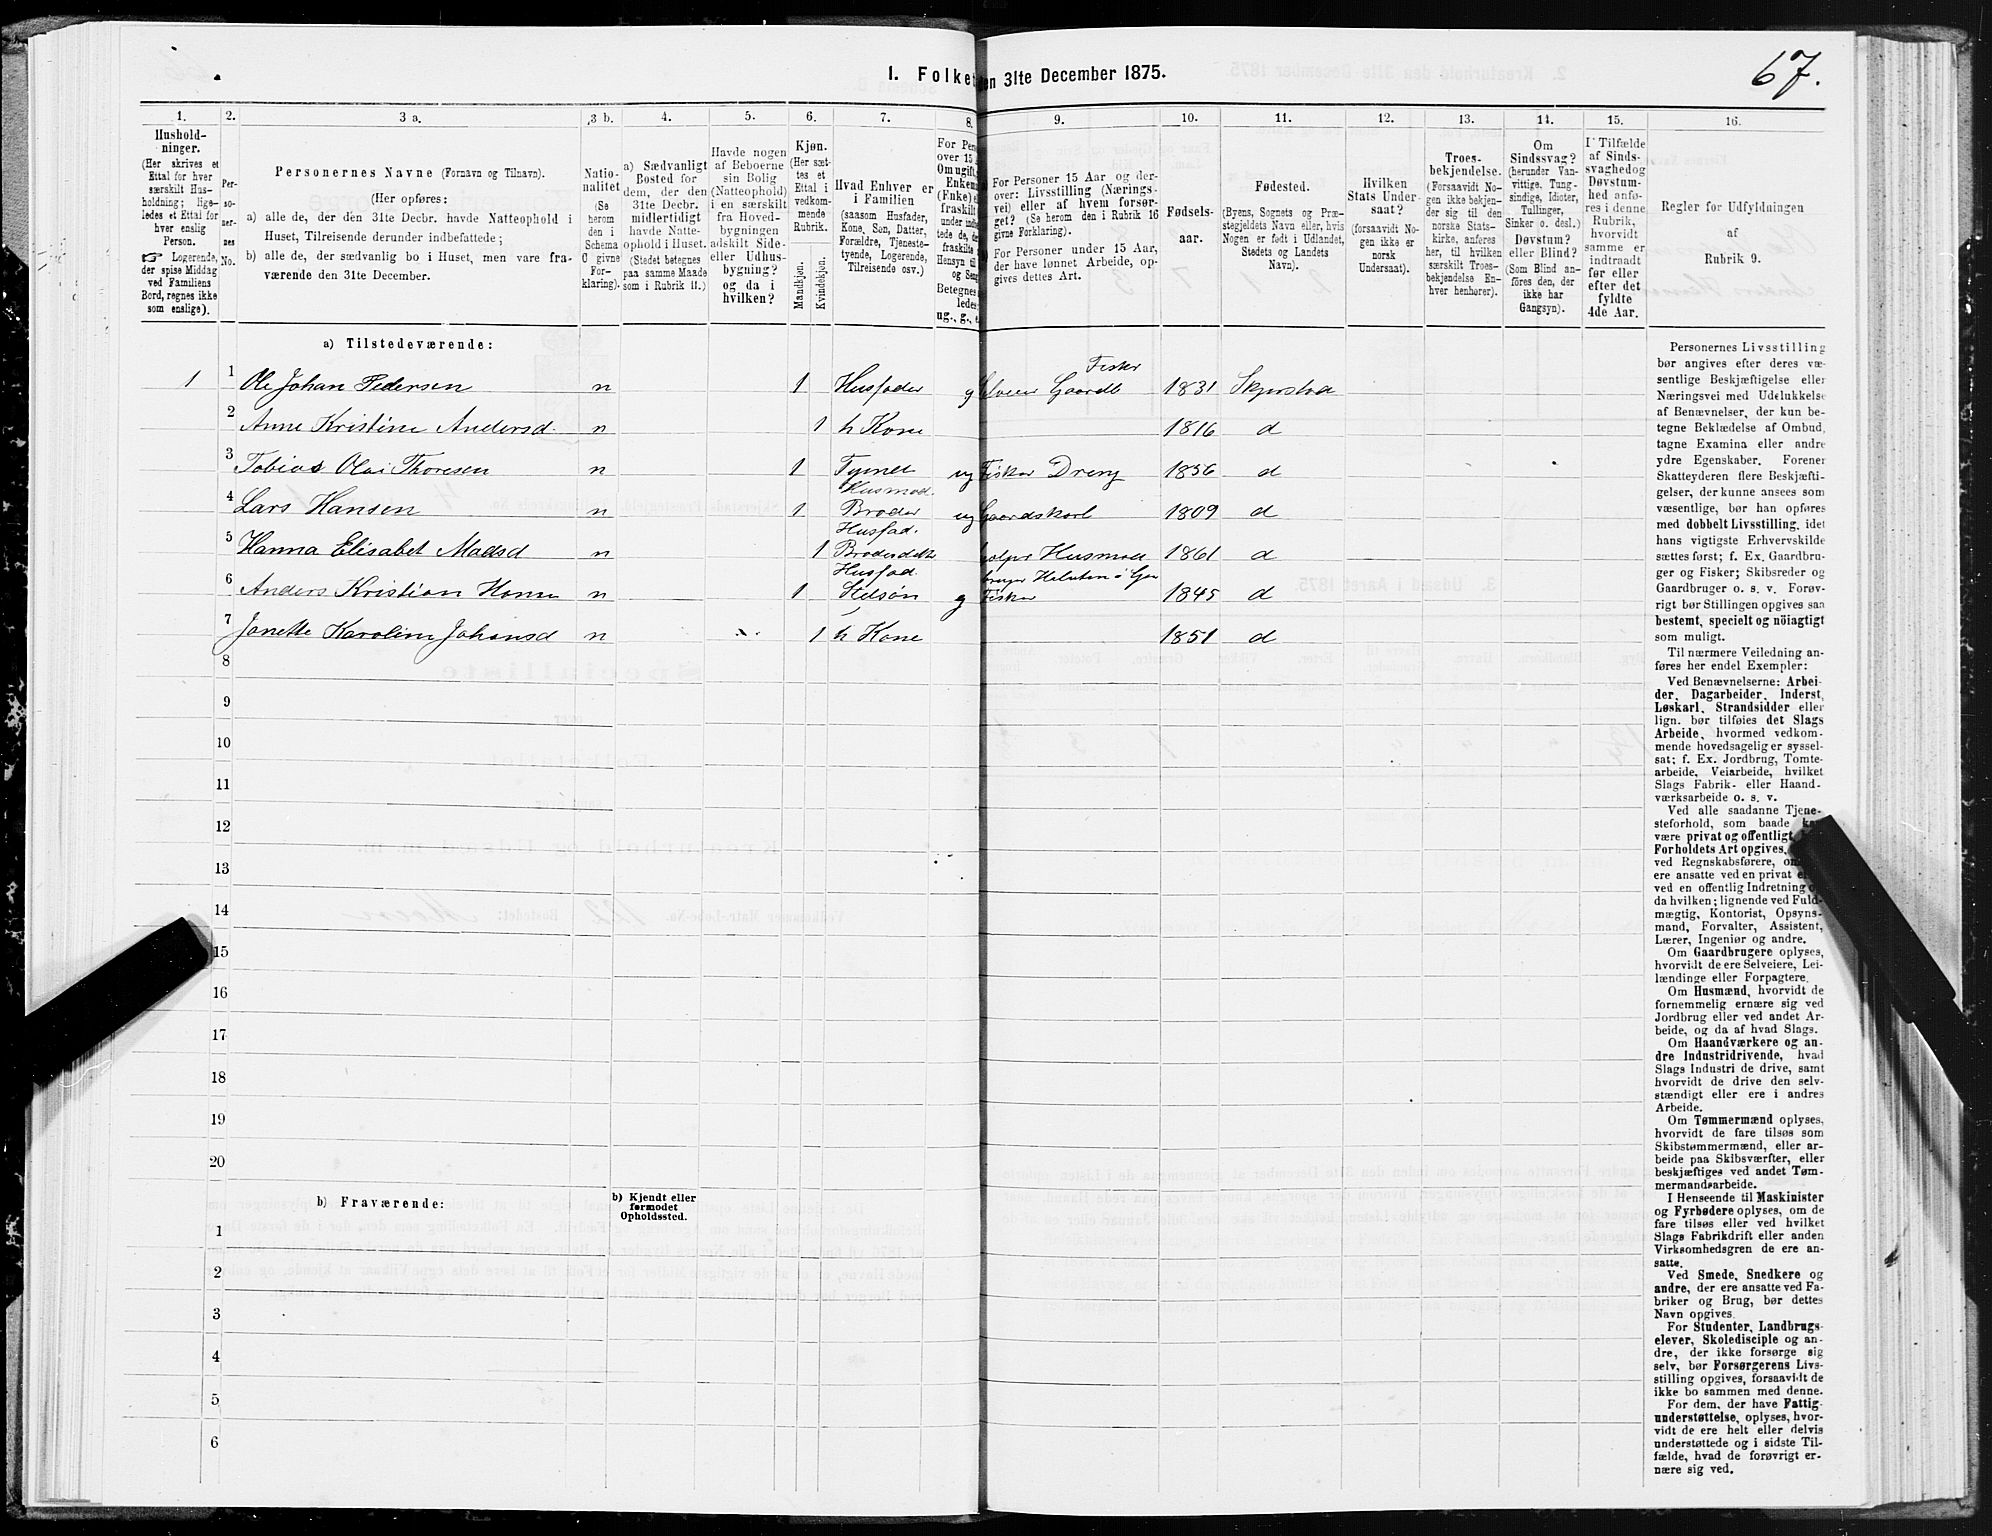 67.
I. Folket
en 31te December 1875.
1.
2.
3 a.
3 b.
4.
5.
6.
7.
8.
9.
10.
11.
12.
13.
14.
15.
16.
Hushold-
ninger.
(Her skrives et
Ettal for hver
særskilt Hus-
holdning; lige-
ledes et Ettal for
hver enslig
Person.
☞ Logerende,
der spise Middag
ved Familiens
Bord, regnes ikke
som enslige).
Per-
so-
ner-
nes
No.
Personernes Navne (Fornavn og Tilnavn).
(Her opføres:
a) alle de, der den 31te Decbr. havde Natteophold i
Huset, Tilreisende derunder indbefattede;
b) alle de, der sædvanlig bo i Huset, men vare fra-
værende den 31te December.
Natio-
nalitet
(Se
herom
den i
Schema
C givne
For-
klaring).
a) Sædvanligt
Bosted for
dem, der den
31te Decbr.
midlertidigt
havde Natte-
ophold i Huset.
(Stedet betegnes
paa samme Maade
som i Rubrik 11.)
Havde nogen
af Beboerne
sin Bolig
(Natteophold)
i en særskilt
fra Hoved-
bygningen
adskilt Side-
eller Udhus-
bygning?
og da i
hvilken?
Kjøn.
(Her sæt-
tes et
Ettal i
vedkom-
mende
Rubrik.
Mandkjøn.
Kvindekjøn.
Hvad Enhver er
i Familien
(saasom Husfader,
Kone, Søn, Datter,
Forældre, Tjeneste-
tyende, Logerende,
Tilreisende osv.)
For Pers
over 15
Om ugift,
Enkema
(Enke) e
fraskilt
under indbe
tede de, de
fraskilte
Hensyn til
og Seng
Betegnes
ledes:
ug., g., e
For Personer 15 Aar og der-
over: Livsstilling (Nærings-
vei) eller af hvem forsør-
get? (Se herom den i Rubrik 16
givne Forklaring).
For Personer under 15 Aar,
der have lønnet Arbeide, op-
gives dettes Art.
Fødsels-
aar.
Fødested.
(Byens, Sognets og Præ-
stegjeldets Navn eller, hvis
Nogen er født i Udlandet,
Stedets og Landets
Navn).
Hvilken
Stats Under-
saat?
(forsaavidt No-
gen ikke er
norsk
Undersaat).
Troes-
bekjendelse.
(Forsaavidt No-
gen ikke bekjen-
der sig til den
norske Stats-
kirke, anføres
her, til hvilken
særskilt Troes-
bekjendelse En-
hver henhører).
Om
Sindssvag?
(herunder Van-
vittige, Tung-
sindige, Idioter,
Tullinger,
Sinker o. desl.)
Døvstum?
eller Blind?
(Som Blind an-
føres den, der
ikke har
Gangsyn).
I Tilfælde
af Sinds-
svaghed og
Døvstum-
hed anfø-
res i denne
Rubrik,
hvorvidt
samme er
indtraadt
før eller
efter det
fyldte
4de Aar.
Regler for Udfyldningen
af
Rubrik 9.
a) Tilstedeværende:
Fisker
1 1 Ole Johan Pedersen n 1 Husfader g Selveier Gaardb 1831 Skjerstad
2 Anne Kristine Andersd. n 1 h Kone 1816 d
3 Tobias Olai Thoresen n 1 Tyende ug Fisker Dreng 1856 d
Husmod.
4 Lars Hansen n 1 Broder ug Gaardskarl 1809 d
Husfad.
5 Hanna Elisabet Madsd n 1 Brodersdatr hjælper Husmod 1861 d
Husfad.
6 Anders Kristian Hans n 1 Stedsøn g Fisker 1845 d
7 Janette Karoline Johansd n 1 h Kone 1851 d
8
9
10
11
12
13
14
15
16
17
18
19
20
b) Fraværende:
b) Kjendt eller
formodet
Opholdssted.
1
2
3
4
5
6
Personernes Livsstilling
bør angives efter deres væ-
sentlige Beskjæftigelse eller
Næringsvei med Udelukkelse
af Benævnelser, der kun be-
tegne Beklædelse af Ombud,
tagne Examina eller andre
ydre Egenskaber. Forener
Skatteyderen flere Beskjæfti-
gelser, der kunne ansees som
væsentlige, bør han opføres
med dobbelt Livsstilling, idet
hans vigtigste Erhvervskilde
sættes først; f. Ex. Gaardbru-
ger og Fisker; Skibsreder og
Gaardbruger o. s. v. Forøv-
rigt bør Stillingen opgives saa
bestemt, specielt og nöiagtigt
som muligt.
Til nærmere Veiledning an-
føres her endel Exempler:
Ved Benævnelserne: Arbei-
der, Dagarbeider, Inderst,
Løskarl, Strandsidder eller
lign. bør tilføies det Slags
Arbeide, hvormed vedkom-
mende hovedsagelig er syssel-
sat; f. Ex. Jordbrug, Tomte-
arbeide, Veiarbeide, hvilket
Slags Fabrik- eller Haand-
værksarbeide o. s. v.
Ved alle saadanne Tjene-
steforhold, som baade kan
være privat og offentligt,
Forholdets Art opgives,
ved Regnskabsførere, om
ere ansatte ved en privat e
ved en offentlig Indretning o
da hvilken; lignende ved Fuld-
mægtig, Kontorist, Opsyns-
mand, Forvalter, Assistent,
Lærer, Ingeniør og andre.
Om Gaardbrugere oplyses,
hvorvidt de ere Selveiere, Lei-
lændinge eller Forpagtere.
Om Husmænd, hvorvidt de
fornemmelig ernære sig ved
Jordbrug eller ved andet Ar-
beide, og da af hvad Slags.
Om Haandværkere og an-
dre Industridrivende, hvad
Slags Industri de drive, samt
hvorvidt de drive den selv-
stændigt eller ere i andres
Arbeide.
Om Tømmermænd oplyses,
hvorvidt de fare tilsøs som
Skibstømmermænd, eller ar-
beide paa Skibsværfter, eller
beskjæftiges ved andet Tøm-
mermandsarbeide.
I Henseende til Maskinister
og Fyrbødere oplyses, om de
fare tilsøs eller ved hvilket
Slags Fabrikdrift eller anden
Virksomhedsgren de ere an-
satte.
Ved Smede, Snedkere og
andre, der ere ansatte ved Fa-
briker og Brug, bør dettes
Navn opgives.
For Studenter, Landbrugs-
elever, Skoledisciple og an-
dre, der ikke forsørge sig
selv, bør Forsørgerens Livs-
stilling opgives, forsaavidt de
ikke bo sammen med denne.
For dem, der have Fattig-
understøttelse, oplyses, hvor-
vidt de ere helt eller delvis
understøttede og i sidste Til-
fælde, hvad de forøvrigt er-
nære sig ved.